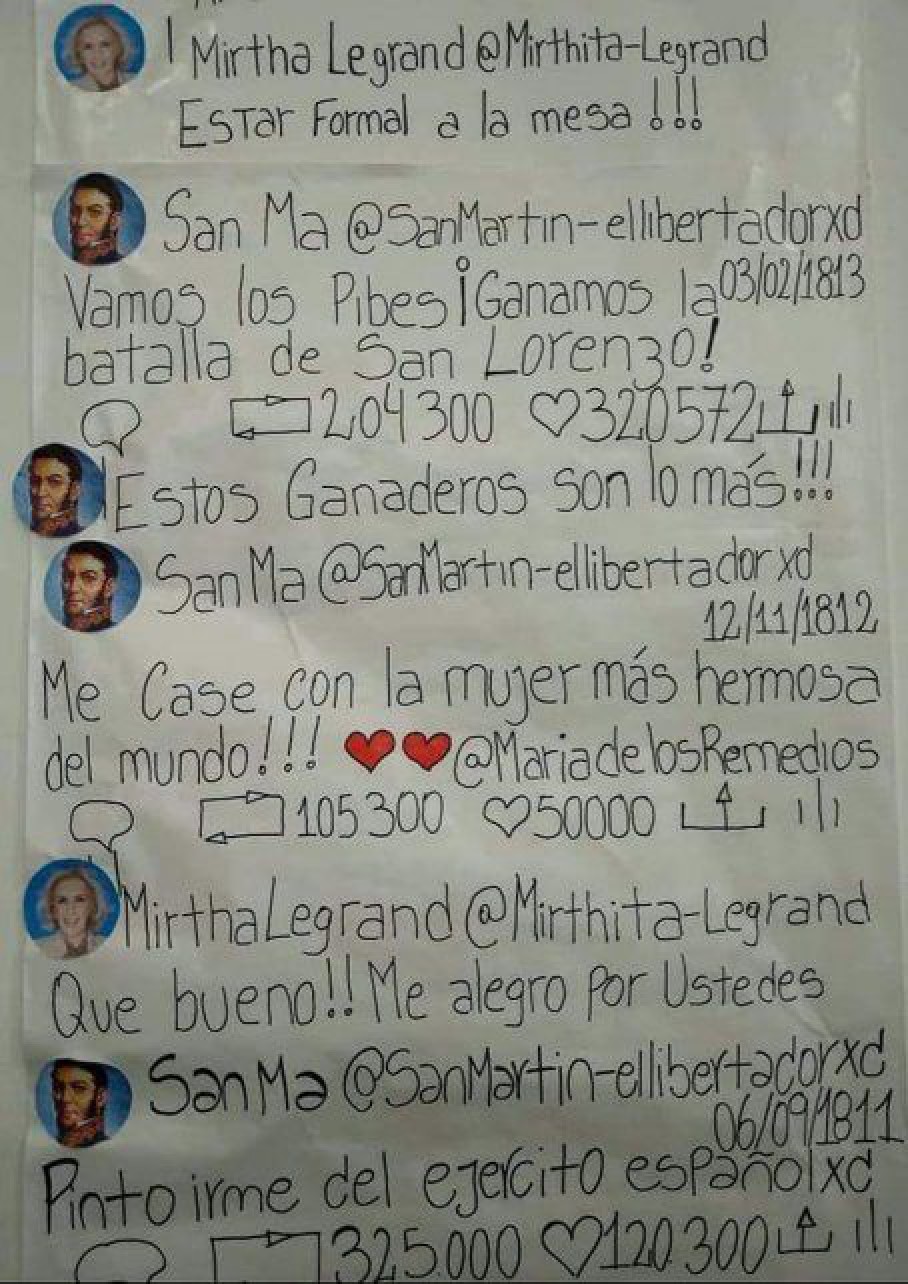 Mirtha Legrand @Mirthita-Legrand
Estar Formal a la mesa !!!
San Ma @SanMartin-ellibertadorxd
03/02/1813
Vamos los Pibes ¡Ganamos la
batalla de San Lorenzo!
204300 320572
Estos Ganaderos son lo más!!!
San Ma @SanMartin-ellibertadorxd
12/11/1812
Me Case con la mujer más hermosa
del mundo!!! ❤❤@MariadelosRemedios
105300 50000
Mirtha Legrand @Mirthita-Legrand
Que bueno!! Me alegro Por Ustedes
San Ma @SanMartin-ellibertadorxd
06/09/1811
Pinto irme del ejercito españolxd
325.000 120300